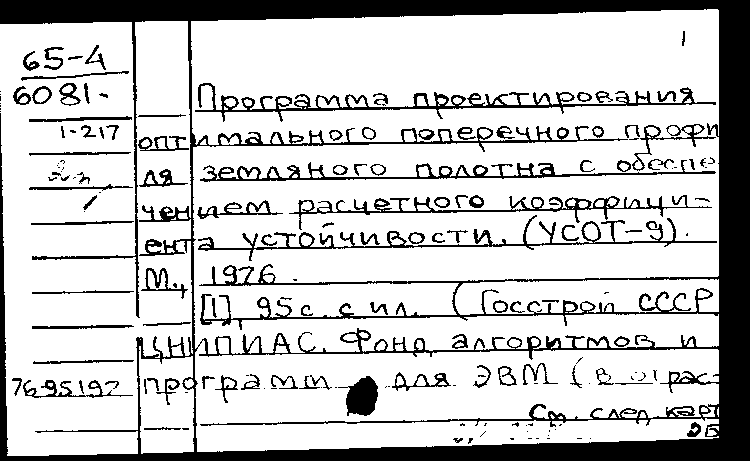 1
65-4
6081-
1-217
Программа проектирования
оптимального поперечного профи
ля земляного полотна с обеспе
чением расчетного коэффици-
ента устойчивости. (УСОТ-9).
М., 1976.
[1], 95 с. с ил. (Госстрой СССР
ЦНИПИАС. Фонд алгоритмов и
76-95192
программ для ЭВМ (в отрас-
См. след. карт